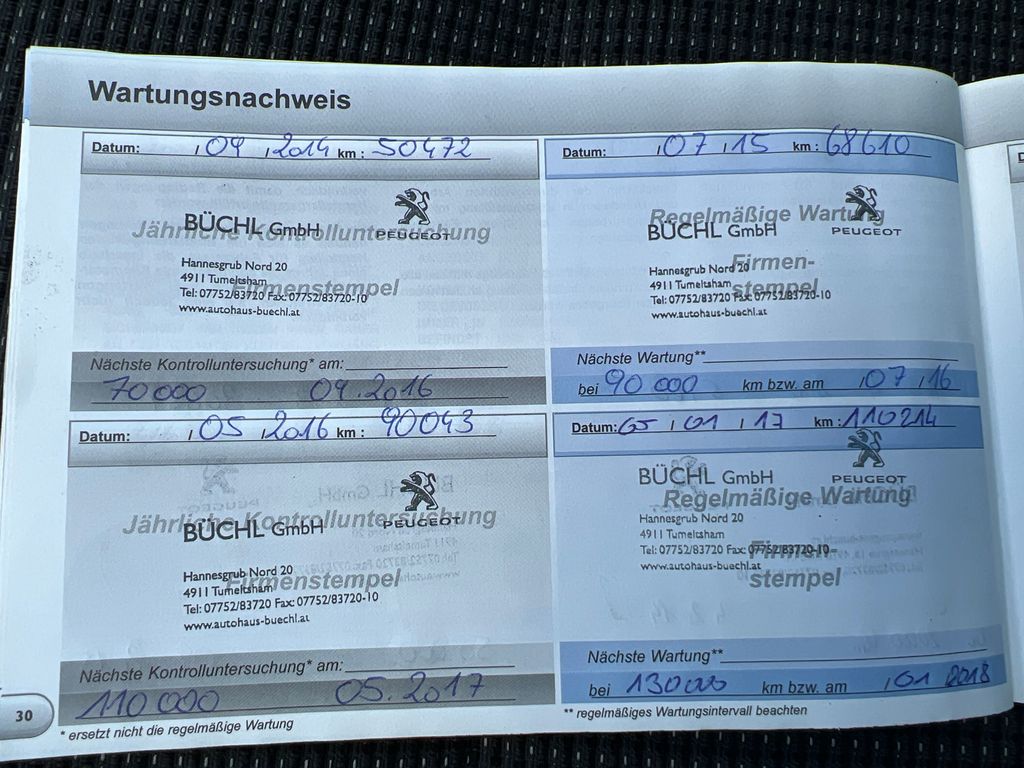 Wartungsnachweis
Datum: / 04 / 2014 km : 50472
BÜCHL GmbH
PEUGEOT
Jährliche Kontrolluntersuchung
Hannesgrub Nord 20
4911 Tumeltsham
Firmenstempel
Tel: 07752/83720 Fax: 07752/83720-10
www.autohaus-buechl.at
Nächste Kontrolluntersuchung* am:
70000 04.2016
Datum: / 07 / 15 km : 68610
Regelmäßige Wartung
BÜCHL GmbH
PEUGEOT
Hannesgrub Nord 20
4911 Tumeltsham
Tel: 07752/83720 Fax: 07752/83720-10
www.autohaus-buechl.at
Firmen-
stempel
Nächste Wartung**
bei 90 000 km bzw. am / 07 / 16
Datum: / 05 / 2016 km : 90043
PEUGEOT
Jährliche Kontrolluntersuchung
BÜCHL GmbH
Hannesgrub Nord 20
4911 Tumeltsham
Firmenstempel
Tel: 07752/83720 Fax: 07752/83720-10
www.autohaus-buechl.at
Nächste Kontrolluntersuchung* am:
110 000 05.2017
Datum: 65 / 01 / 17 km : 110214
BÜCHL GmbH
PEUGEOT
Regelmäßige Wartung
Hannesgrub Nord 20
4911 Tumeltsham
Tel: 07752/83720 Fax: 07752/83720-10
www.autohaus-buechl.at
Firmen-
stempel
Nächste Wartung**
bei 130000 km bzw. am / 01 2018
30
* ersetzt nicht die regelmäßige Wartung
** regelmäßiges Wartungsintervall beachten